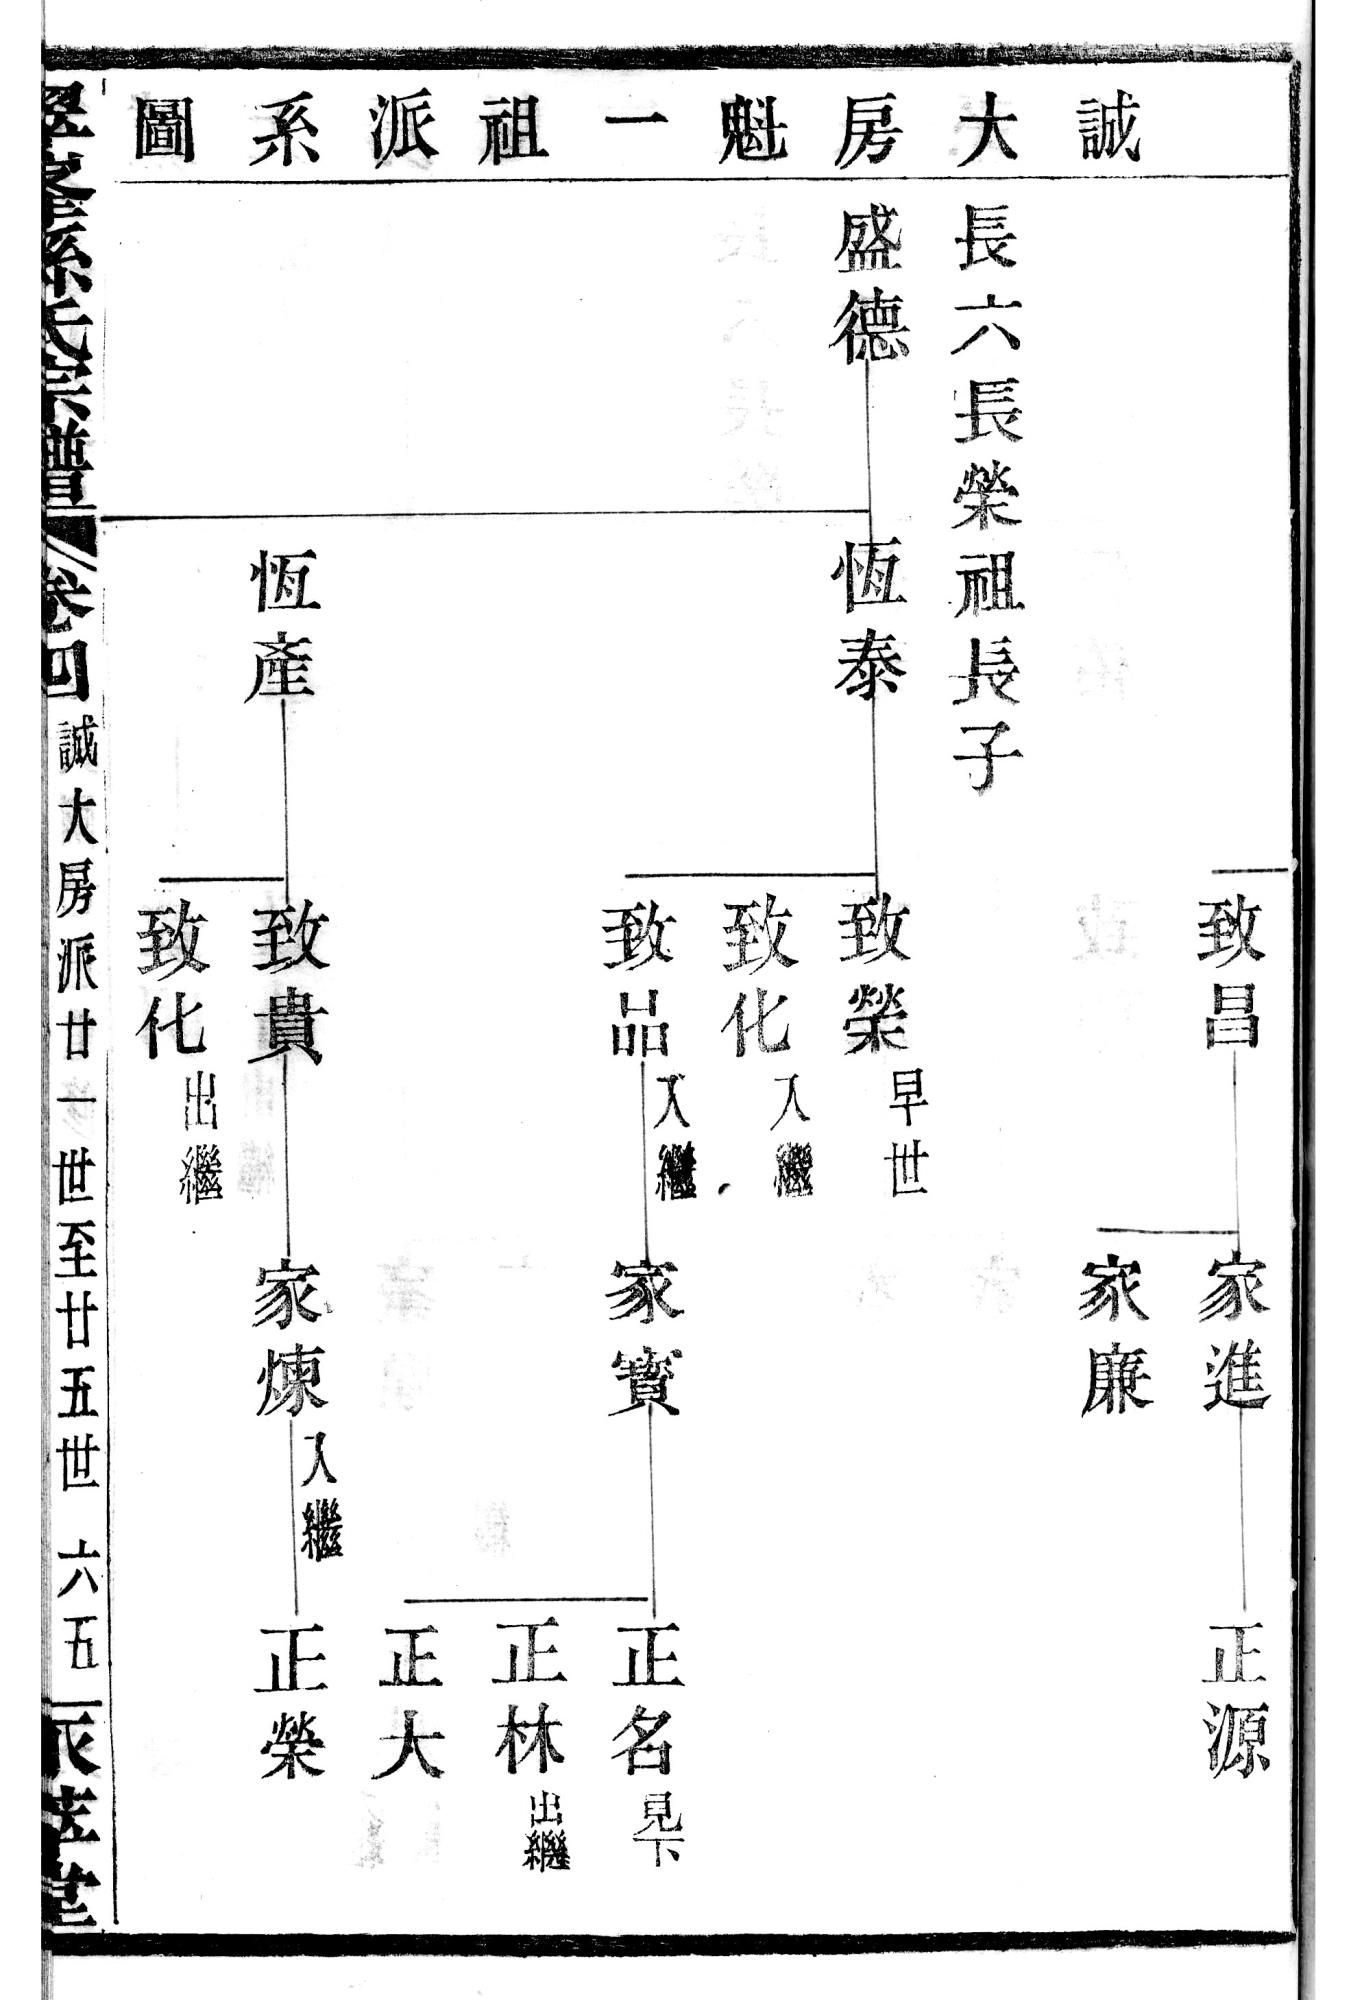 誠大房魁一祖派系圖
致昌
家進
正源
家廉
長六長榮祖長子
盛德
恆泰
致榮 早世
致化 入繼
致品 入繼
家寶
正名 見下
正林 出繼
正大
恆產
致貴
家煉 入繼
正榮
致化 出繼
孫氏宗譜 卷四 誠大房派廿一世至廿五世 六五 堂